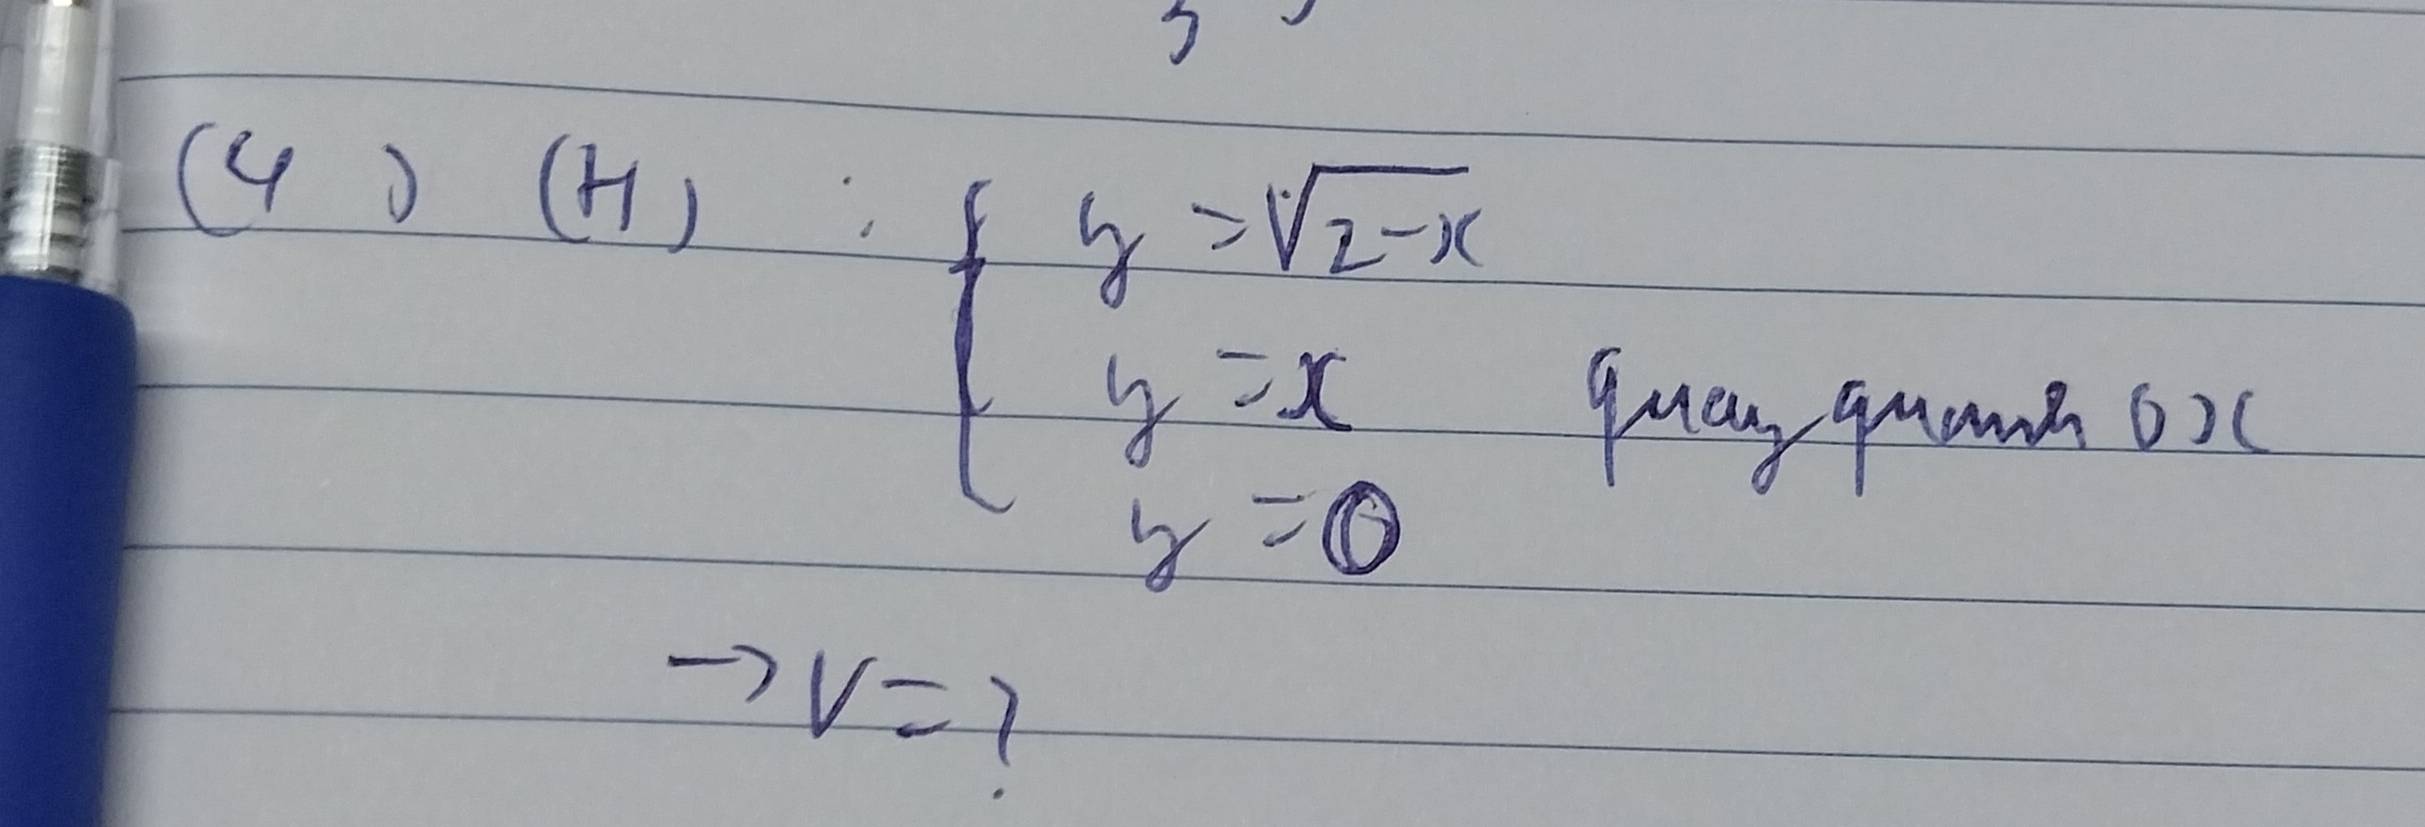 (4) (H) : { y = √2-x
y = x quay quanh ox
y = 0
→ V = ?